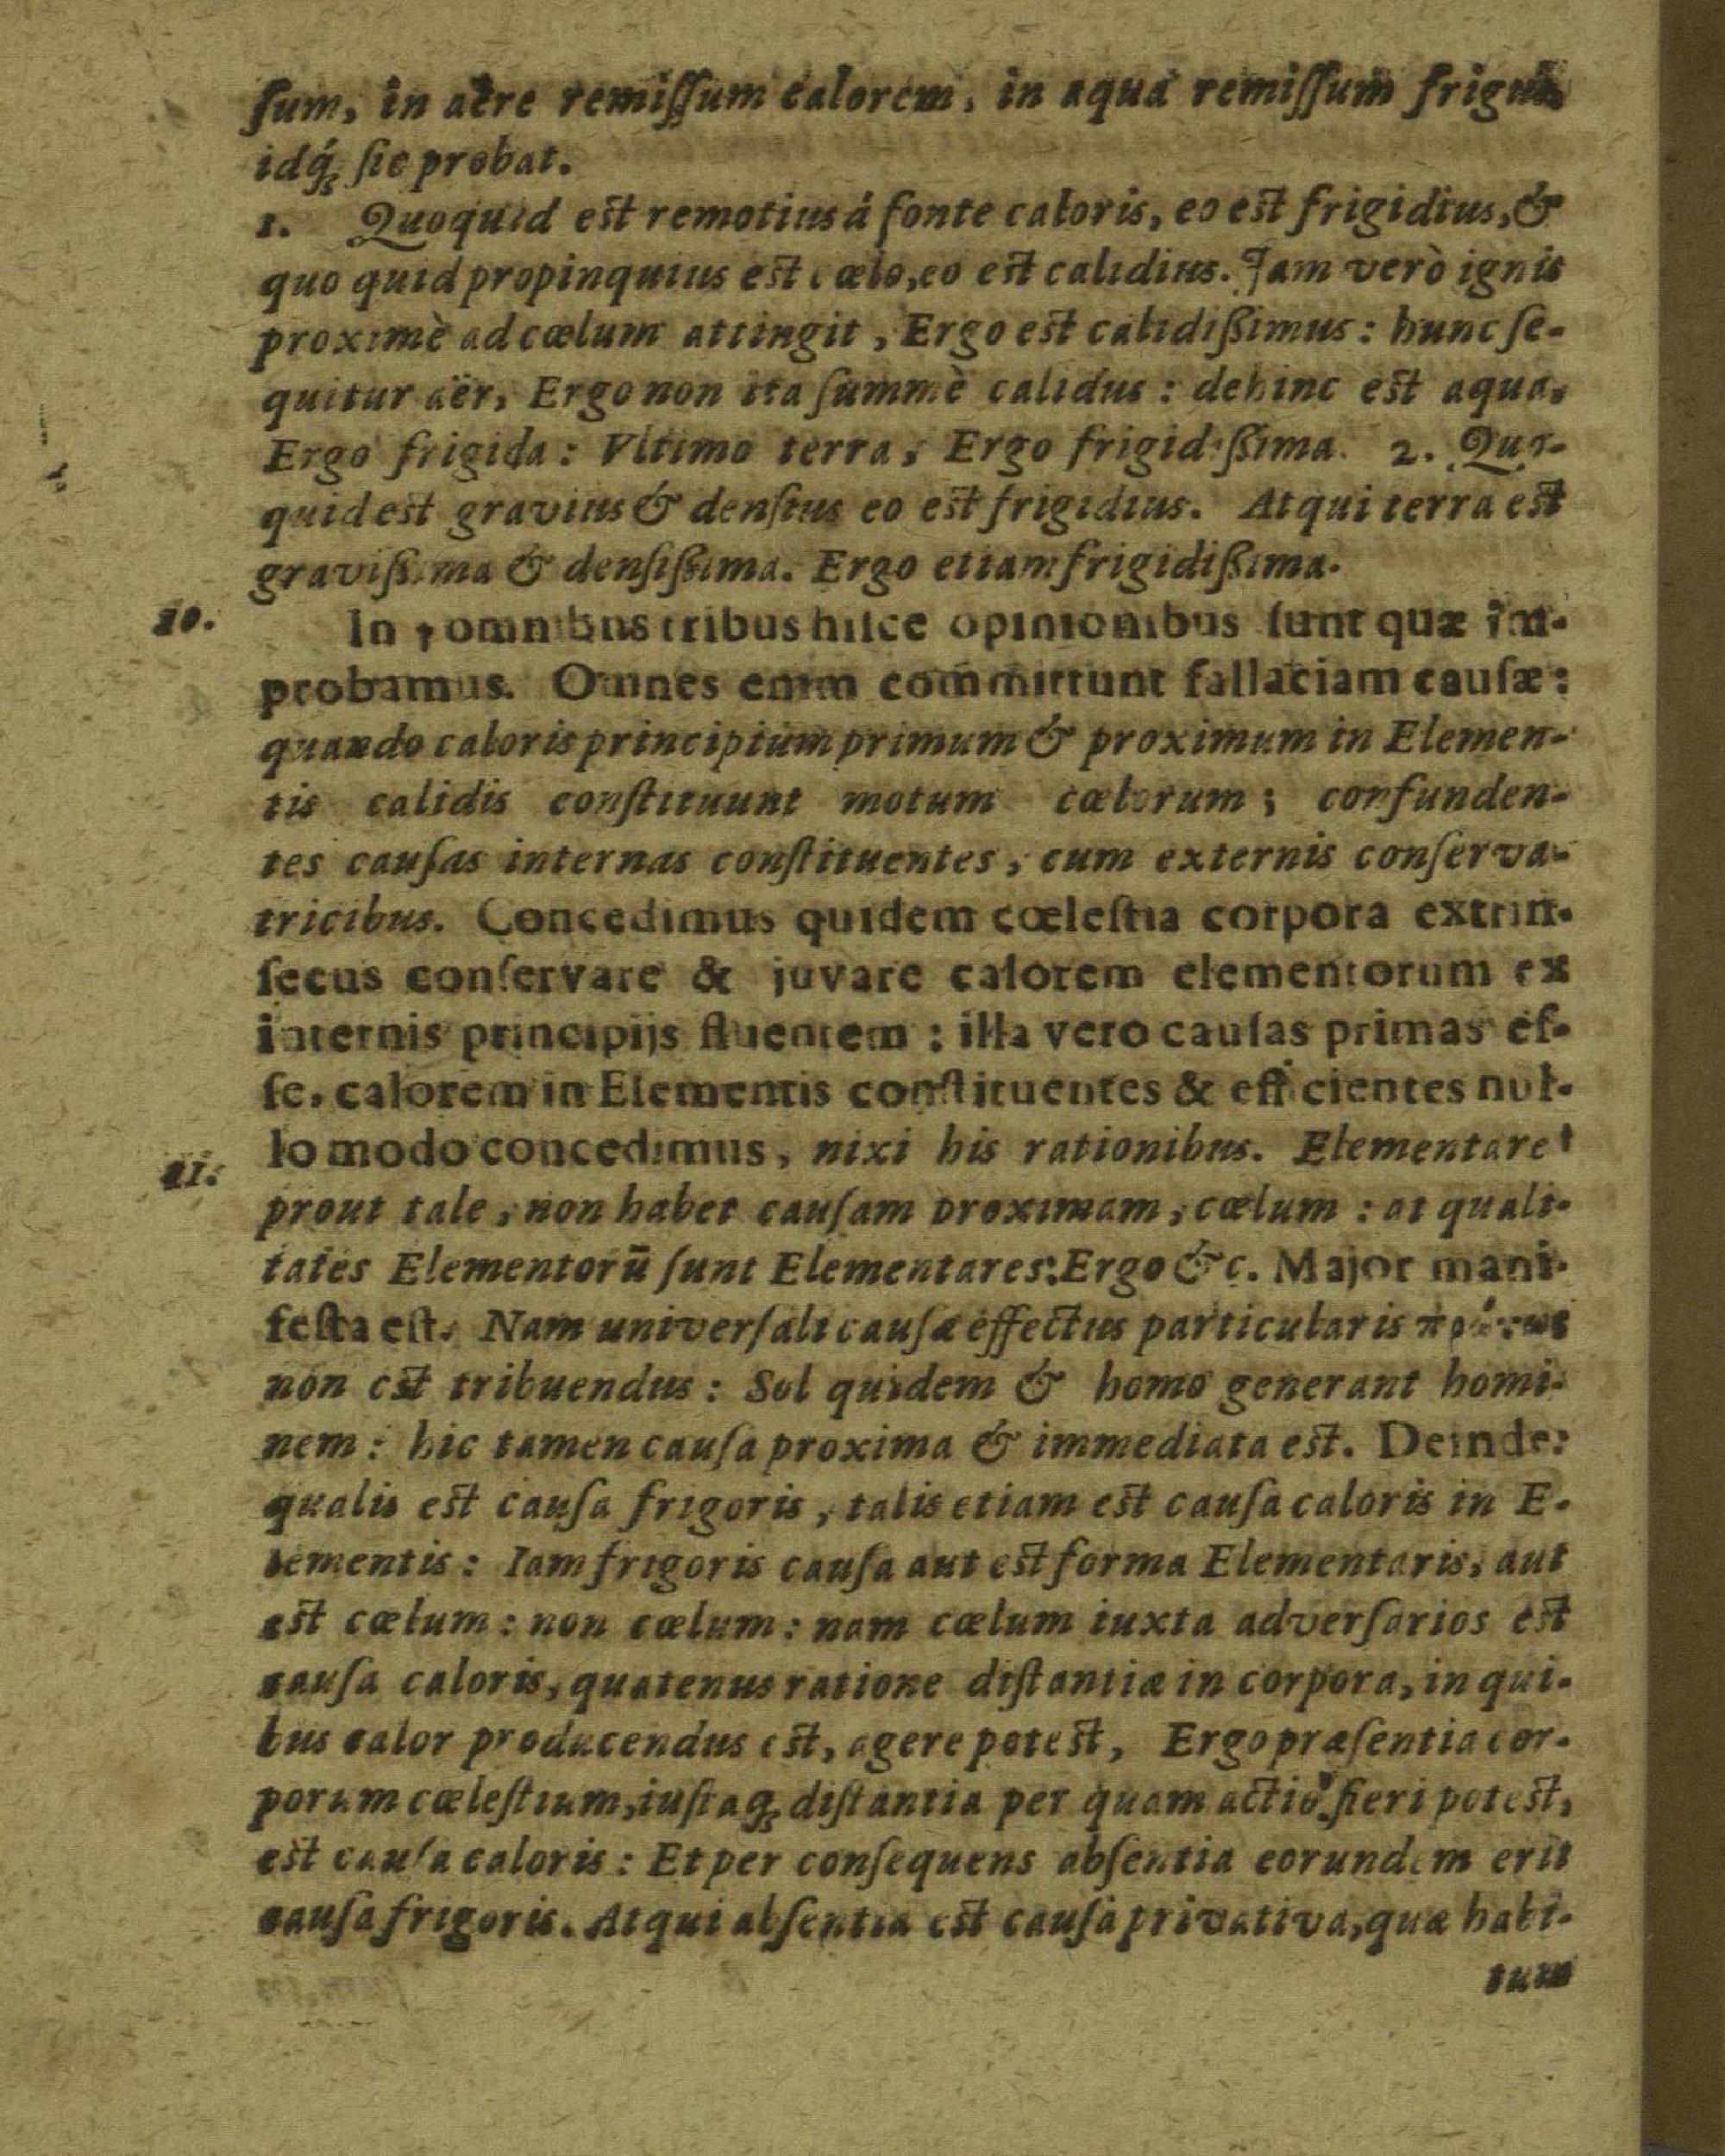 ſum, in aëre remiſſum calorem, in aquâ remiſſum frigus
idq́; ſic probat.
1. Quoquid est remotius á fonte caloris, eo est frigidius, &
quo quid propinquius est cœlo, eo est calidius. Jam verò ignis
proximè ad cœlum attingit, Ergo est calidißimus: hunc ſe-
quitur aër, Ergo non ita ſummè calidus: dehinc est aqua,
Ergo frigida: Vltimo terra, Ergo frigidißima. 2. Quo-
quid est gravius & denſius eo est frigidius. Atqui terra est
gravißima & denſißima. Ergo etiam frigidißima.
10. In omnibus tribus hiſce opinionibus ſunt quæ im-
probamus. Omnes enim committunt fallaciam cauſæ:
quando caloris principium primum & proximum in Elemen-
tis calidis conſtituunt motum cœlorum; confunden-
tes cauſas internas conſtituentes, cum externis conſerva-
tricibus. Concedimus quidem cœleſtia corpora extrin-
ſecus conſervare & juvare calorem elementorum ex
internis principijs fluentem: illa vero cauſas primas eſ-
ſe, calorem in Elementis conſtituentes & efficientes nul-
lo modo concedimus, nixi his rationibus. Elementare
11. prout tale, non habet cauſam proximam, cœlum: at quali-
tates Elementorū ſunt Elementares: Ergo &c. Major mani-
feſta eſt. Nam univerſali cauſæ effectus particularis
non est tribuendus: Sol quidem & homo generant homi-
nem: hic tamen cauſa proxima & immediata est. Deinde:
qualis est cauſa frigoris, talis etiam est cauſa caloris in E-
lementis: Iam frigoris cauſa aut est forma Elementaris, aut
est cœlum: non cœlum: nam cœlum iuxta adverſarios est
cauſa caloris, quatenus ratione diſtantiæ in corpora, in qui-
bus calor producendus est, agere potest, Ergo præſentia cor-
porum cœleſtium, iuſtaq; diſtantia per quam actio fieri potest,
est cauſa caloris: Et per conſequens abſentia eorundem erit
cauſa frigoris. Atqui abſentia est cauſa privativa, quæ habi-
tum